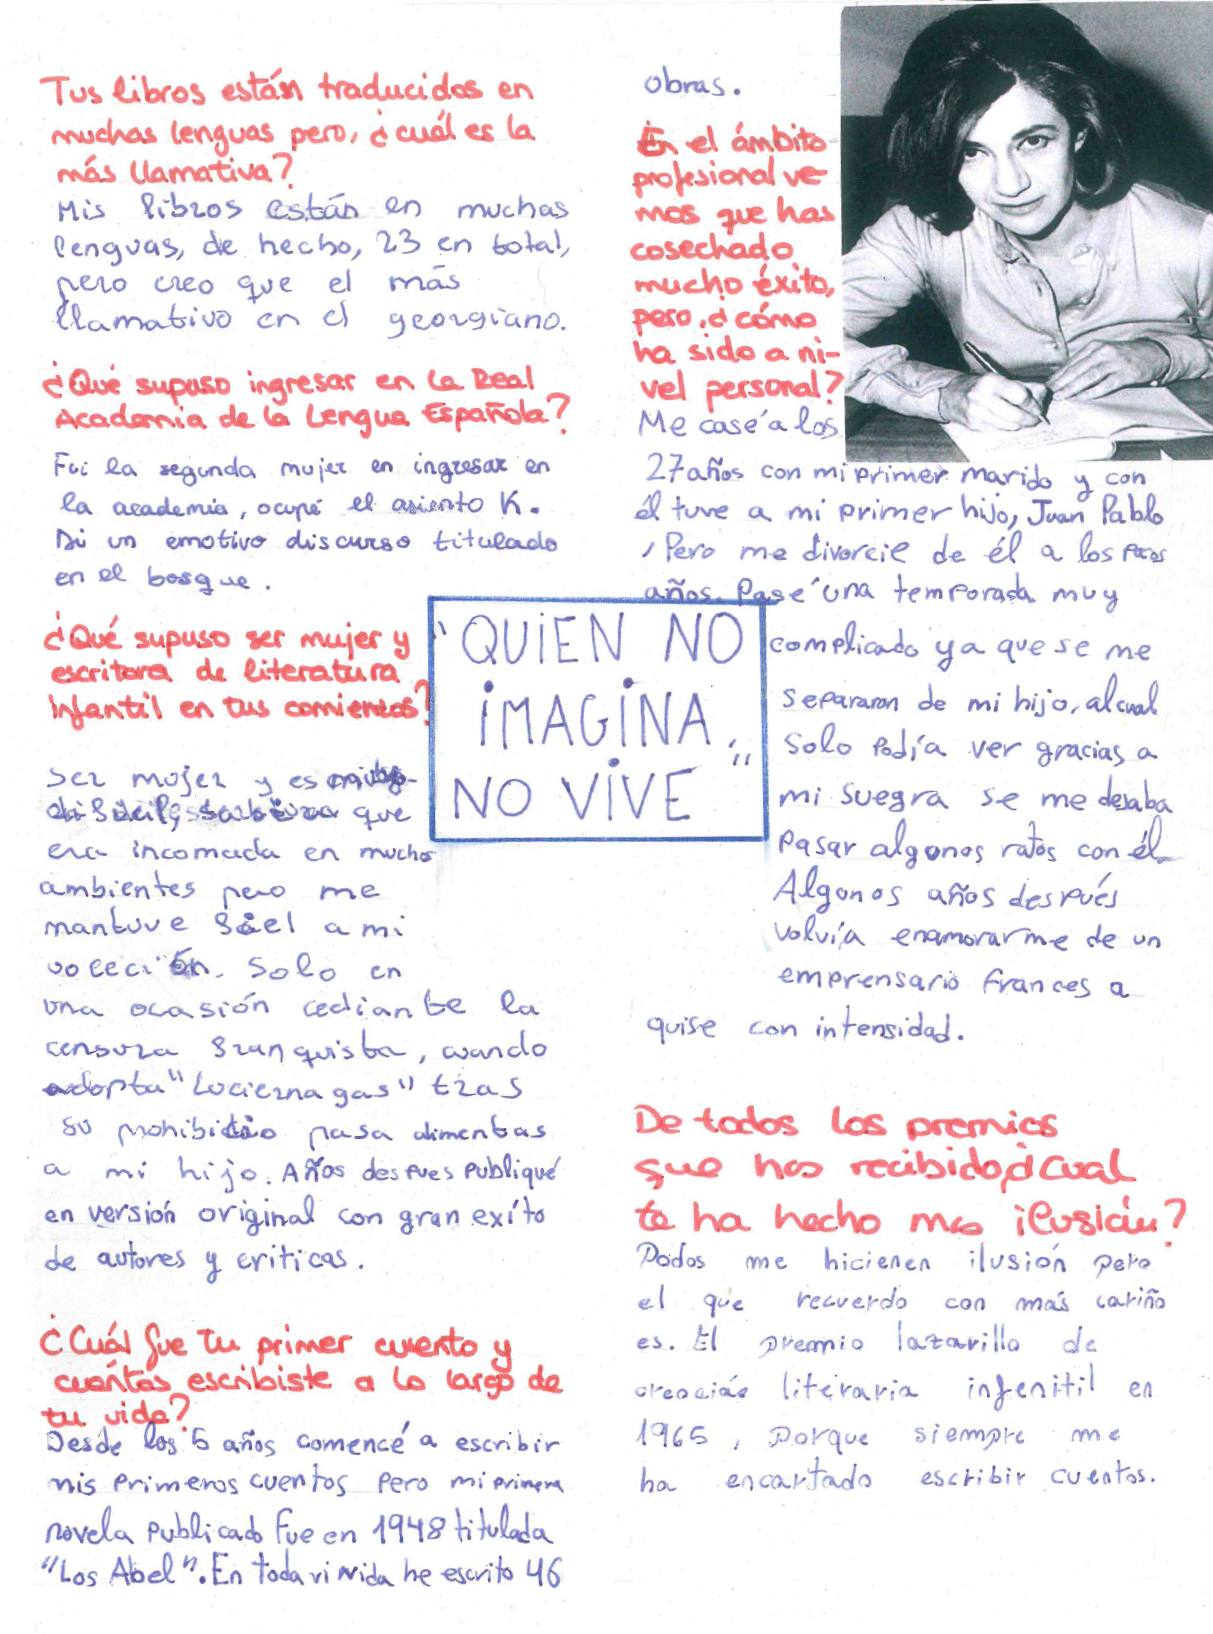 Tus libros están traducidos en
muchas lenguas pero, ¿cuál es la
más llamativa?
Mis libros están en muchas
lenguas, de hecho, 23 en total,
pero creo que el más
llamativo en el georgiano.
¿Qué supuso ingresar en la Real
Academia de la Lengua Española?
Fui la segunda mujer en ingresar en
la academia, ocupé el asiento K.
Di un emotivo discurso titulado
en el bosque.
¿Qué supuso ser mujer y
escritora de literatura
infantil en tus comienzos?
Ser mujer y es
que
era incomoda en muchos
ambientes pero me
mantuve fiel a mi
Solo en
una ocasión cediante la
censura franquista, cuando
adopta "Luciernagas" tras
su prohibicio pasa alimentas
a mi hijo. Años despues publiqué
en versión original con gran exíto
de autores y criticas.
¿Cuál fue tu primer cuento y
cuántos escribiste a lo largo de
tu vida?
Desde los 5 años comencé a escribir
mis primeros cuentos pero mi primera
novela publicado fue en 1948 titulada
"Los Abel". En toda vi vida he escrito 46
obras.
En el ámbito
profesional ve-
mos que has
cosechado
mucho éxito,
pero, ¿cómo
ha sido a ni-
vel personal?
Me casé a los
27 años con mi primer marido y con
él tuve a mi primer hijo, Juan Pablo
, Pero me divorcie de él a los pocos
años. Pasé una temporada muy
complicado ya que se me
separaron de mi hijo, al cual
solo podía ver gracias a
mi suegra se me dejaba
pasar algonos ratos con él.
Algonos años después
volvía enamorarme de un
emprensario frances a
quise con intensidad.
"QUIEN NO
IMAGINA,
NO VIVE"
De todos los premios
que has recibido, ¿cual
te ha hecho mas ilusión?
Podos me hicienen ilusión pero
el que recuerdo con más cariño
es. El premio lazarillo de
creación literaria infenitil en
1965, porque siempre me
ha encartado escribir cuentos.